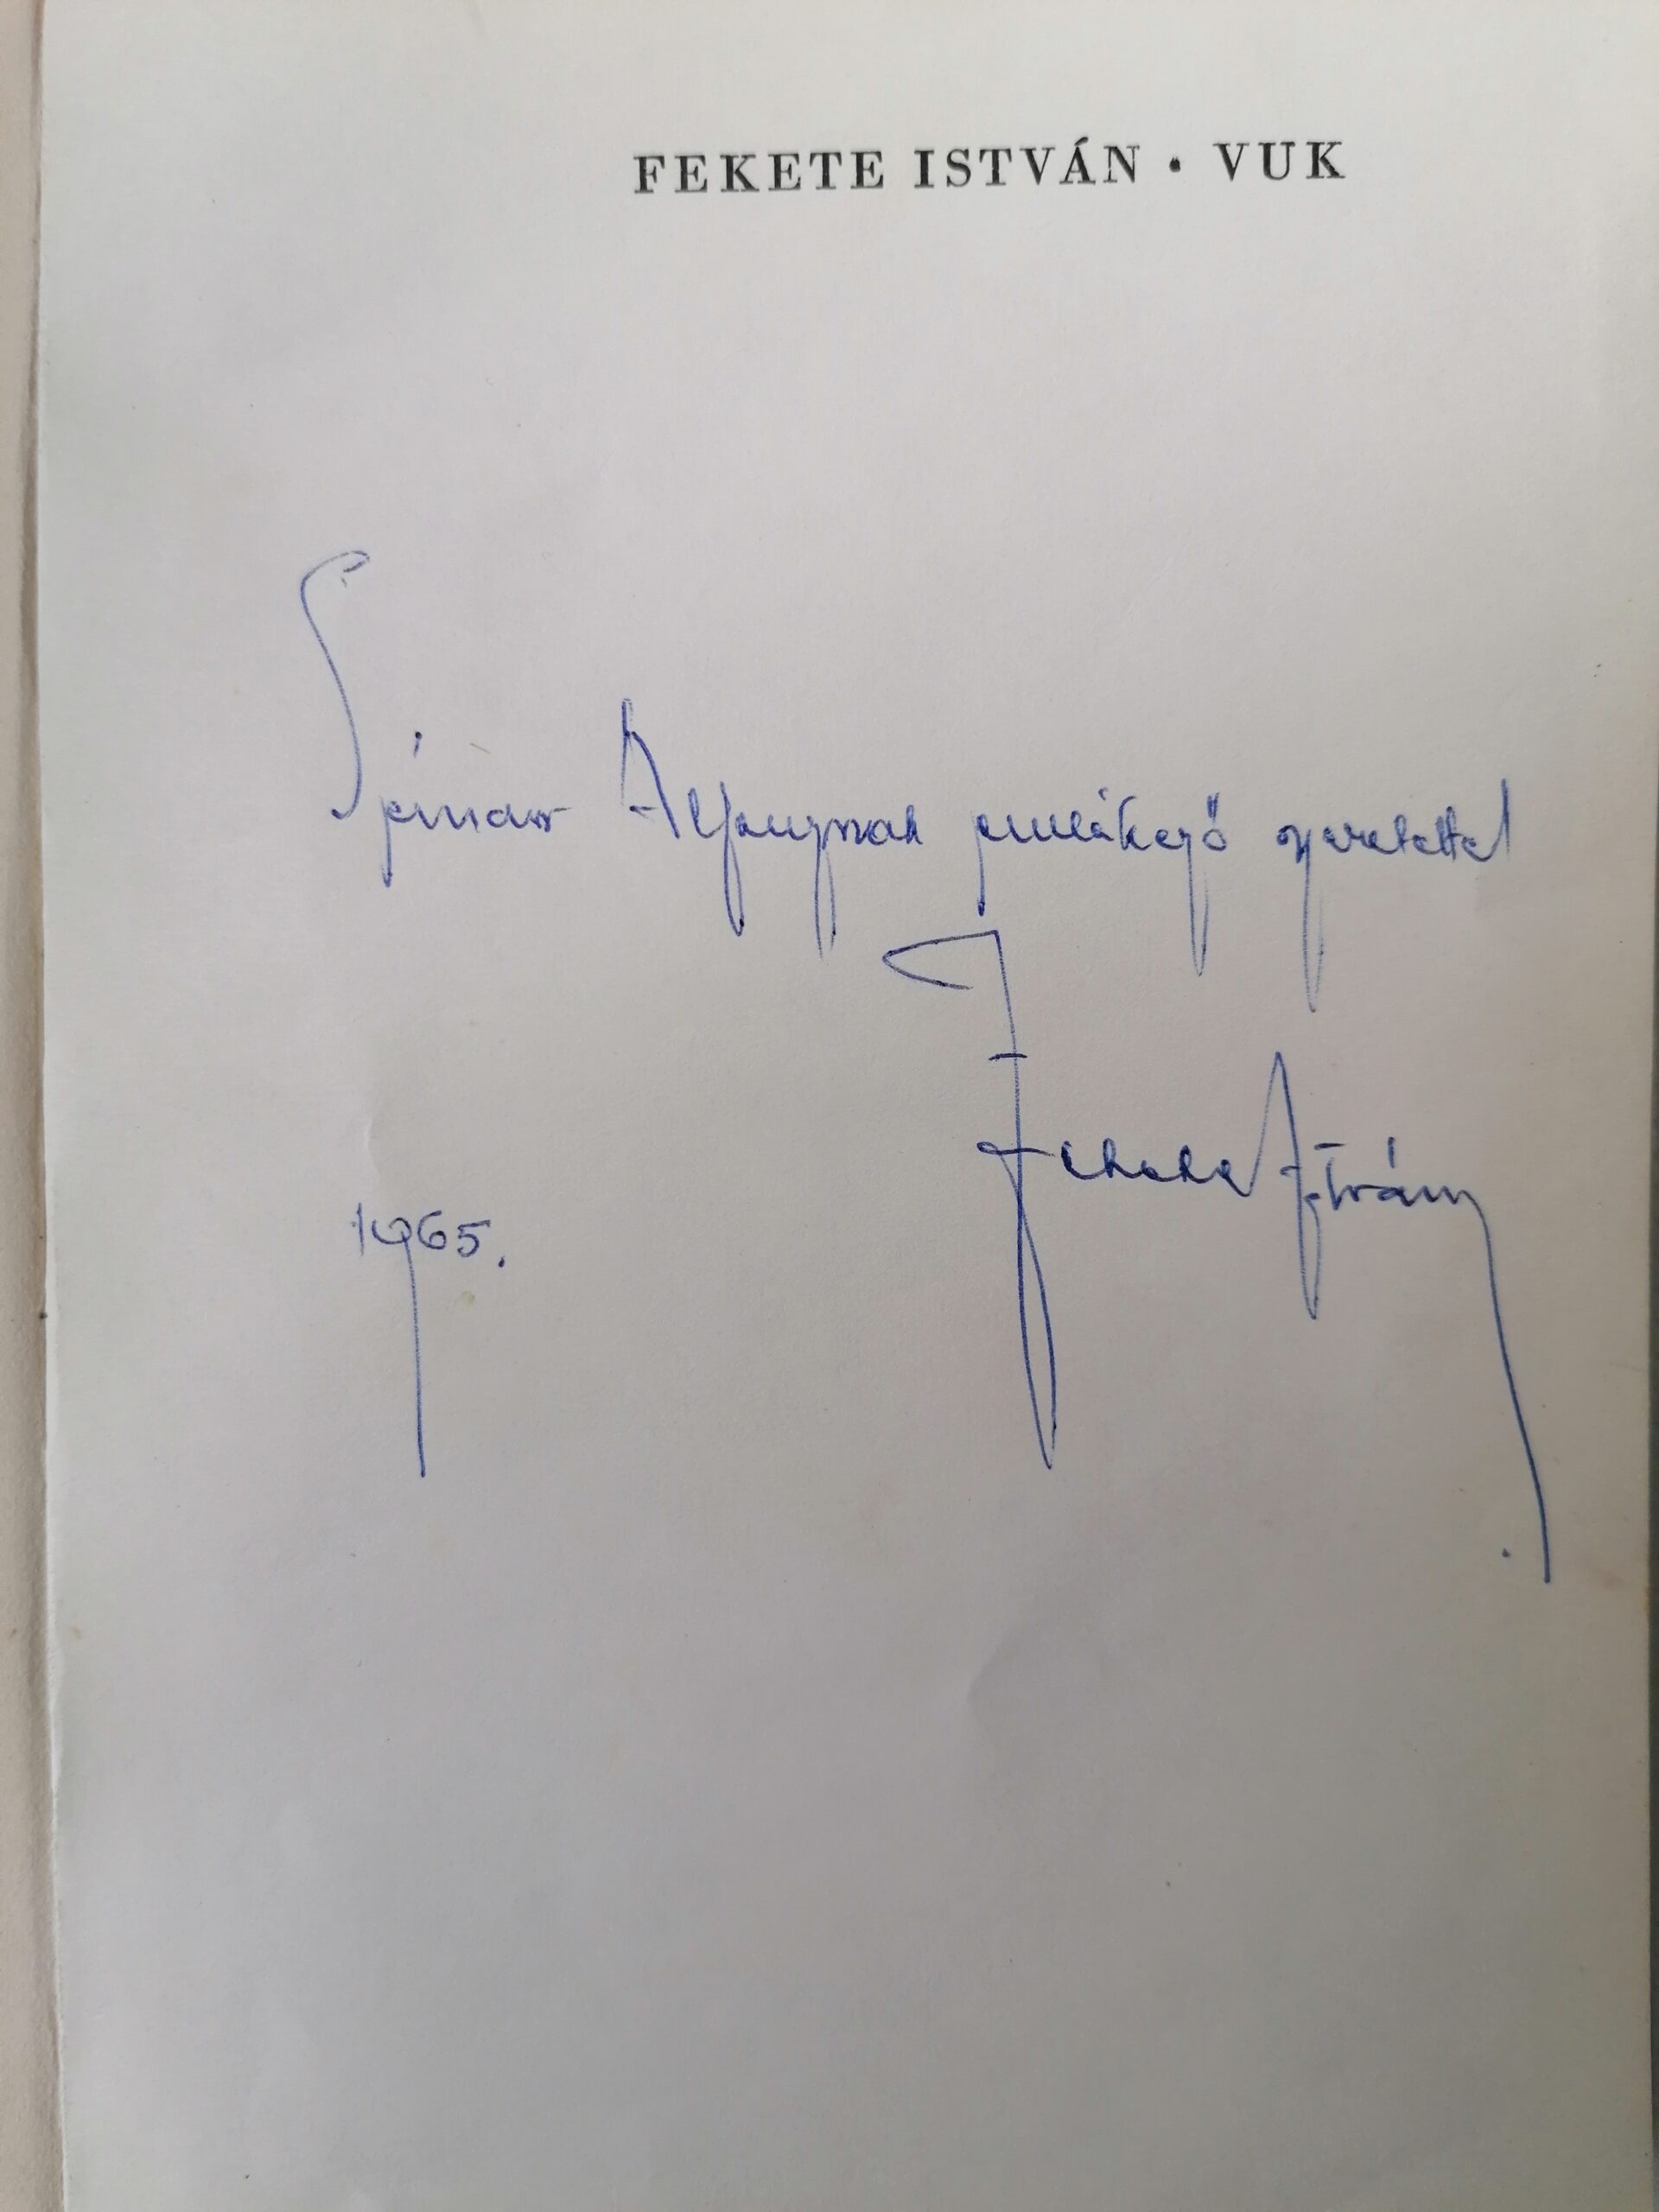 FEKETE ISTVÁN • VUK
Alfonznak emlékező szeretettel
Fekete István
1965.